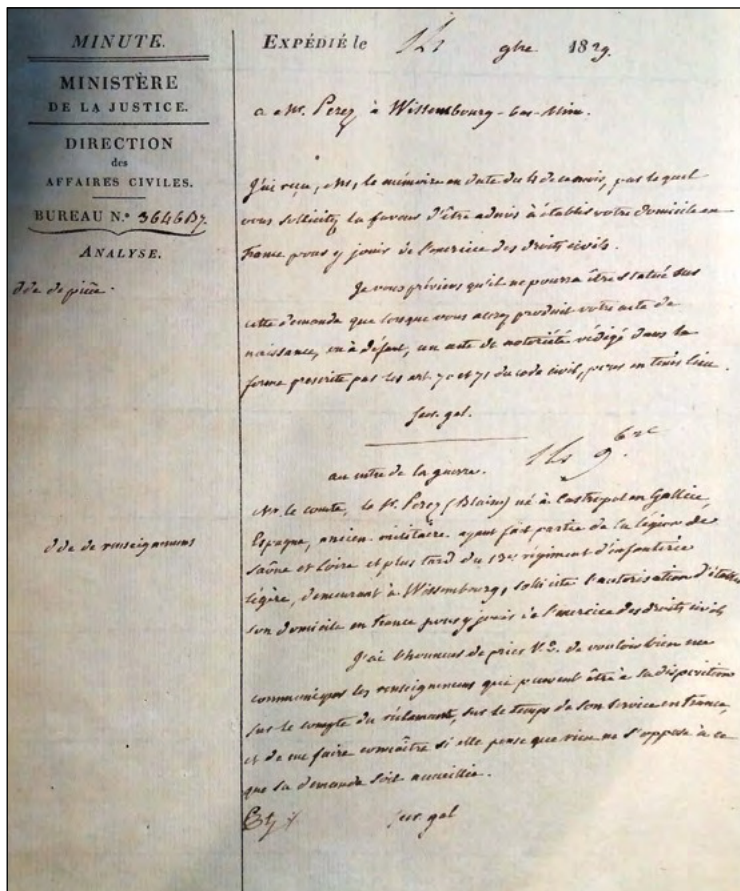 MINUTE.
MINISTÈRE
DE LA JUSTICE.
DIRECTION
des
AFFAIRES CIVILES.
BUREAU N.º 3646B7.
ANALYSE.
dde de pièce.
dde de renseignemens
EXPÉDIÉ le 14 9bre 1829.
a Mr. Perez à Wissembourg-bas-Rhin.
J'ai reçu, Mr, le mémoire en date du 4 de ce mois, par lequel
vous sollicitez la faveur d'être admis à établir votre domicile en
france pour y jouir de l'exercice des droits civils.
Je vous préviens qu'il ne pourra être statué sur
cette demande que lorsque vous aurez produit votre acte de
naissance, ou à défaut, un acte de notoriété rédigé dans la
forme prescrite par les art. 70 et 71 du code civil, pour en tenir lieu.
secr. gal.
14 9.bre
au mtre de la guerre.
Mr. le comte, le Sr. Perez (Blaise) né à Castropol en Gallice,
Espagne, ancien militaire ayant fait partie de la légion de
Saône et Loire et plus tard du 13e régiment d'infanterie
légère, demeurant à Wissembourg, sollicite l'autorisation d'établir
son domicile en france pour y jouir de l'exercice des droits civils
J'ai l'honneur de prier V.E. de vouloir bien me
communiquer les renseignemens qui peuvent être à sa disposition
sur le compte du réclamant, sur le temps de son service en france,
et de me faire connaître si elle pense que rien ne s'oppose à ce
que sa demande soit accueillie.
secr. gal